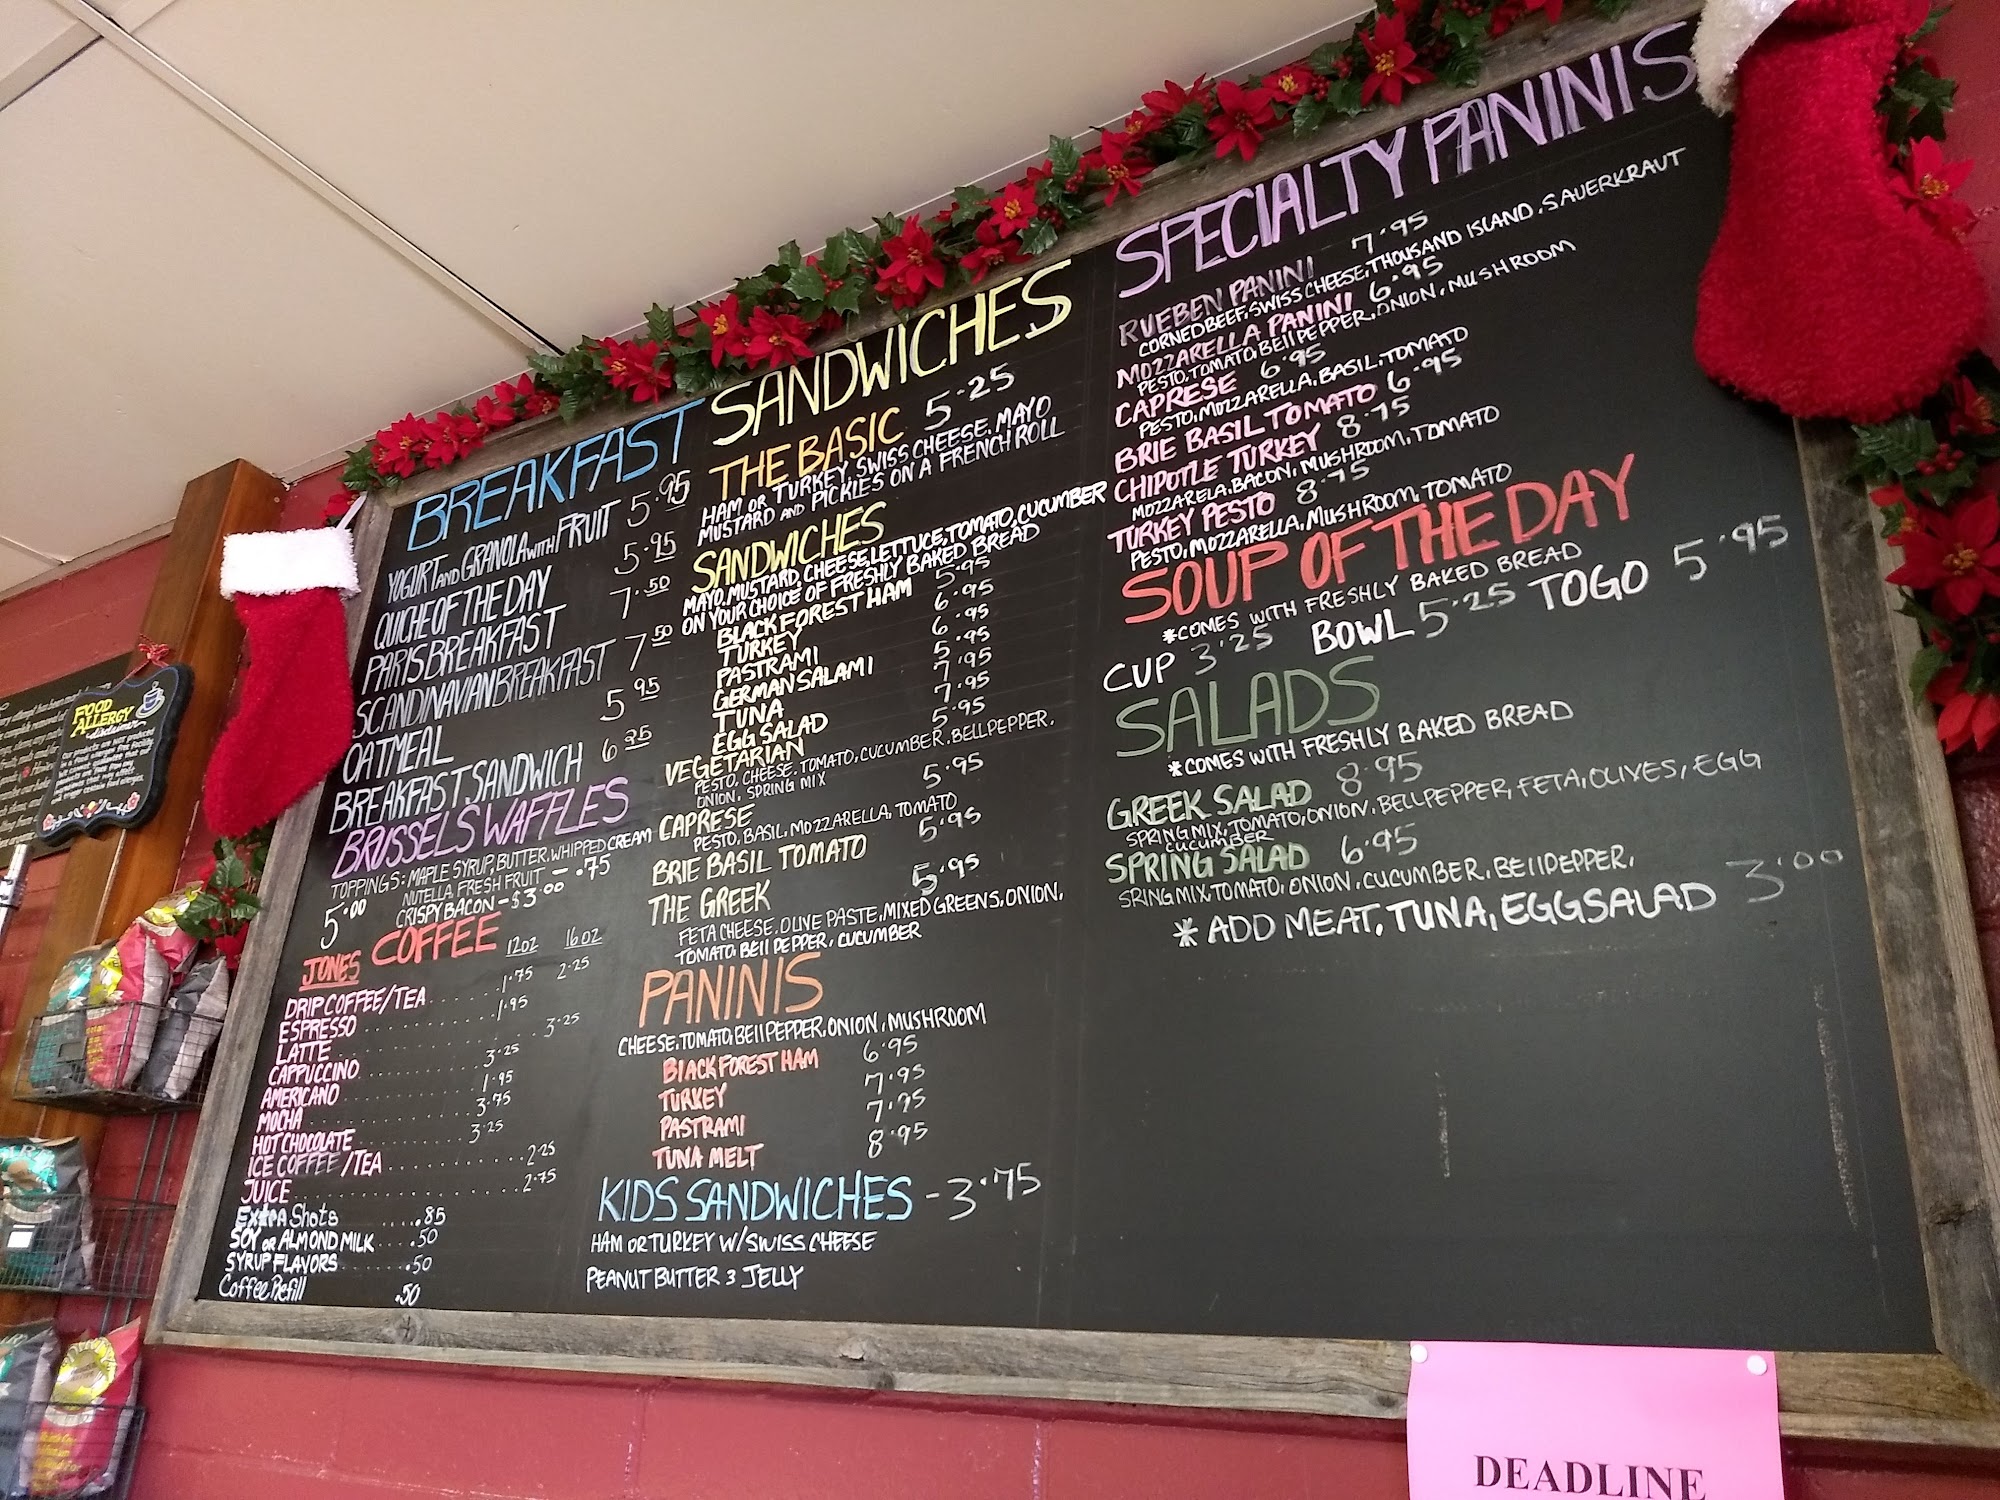 BREAKFAST
YOGURT AND GRANOLA WITH FRUIT 5.95
QUICHE OF THE DAY 5.95
PARIS BREAKFAST 7.50
SCANDINAVIAN BREAKFAST 7.50
OATMEAL 5.95
BREAKFAST SANDWICH 6.25
BRUSSELS WAFFLES
TOPPINGS: MAPLE SYRUP, BUTTER, WHIPPED CREAM
NUTELLA FRESH FRUIT - .75
5.00 CRISPY BACON - $3.00
JONES COFFEE 12OZ 16OZ
DRIP COFFEE/TEA 1.75 2.25
ESPRESSO 1.95
LATTE 3.25
CAPPUCCINO 3.25
AMERICANO 1.95
MOCHA 3.75
HOT CHOCOLATE 3.25
ICE COFFEE/TEA 2.25
JUICE 2.75
EXTRA Shots .85
SOY OR ALMOND MILK .50
SYRUP FLAVORS .50
Coffee Refill .50
SANDWICHES
THE BASIC 5.25
HAM OR TURKEY, SWISS CHEESE, MAYO
MUSTARD AND PICKLES ON A FRENCH ROLL
SANDWICHES
MAYO, MUSTARD, CHEESE, LETTUCE, TOMATO, CUCUMBER
ON YOUR CHOICE OF FRESHLY BAKED BREAD
BLACK FOREST HAM 5.95
TURKEY 6.95
PASTRAMI 6.95
GERMAN SALAMI 5.95
TUNA 7.95
EGG SALAD 7.95
VEGETARIAN 5.95
PESTO, CHEESE, TOMATO, CUCUMBER, BELLPEPPER,
ONION, SPRING MIX
CAPRESE 5.95
PESTO, BASIL, MOZZARELLA, TOMATO
BRIE BASIL TOMATO 5.95
THE GREEK 5.95
FETA CHEESE, OLIVE PASTE, MIXED GREENS, ONION,
TOMATO, BELL PEPPER, CUCUMBER
PANINIS
CHEESE, TOMATO, BELL PEPPER, ONION, MUSHROOM
BLACK FOREST HAM 6.95
TURKEY 7.95
PASTRAMI 7.95
TUNA MELT 8.95
KIDS SANDWICHES - 3.75
HAM OR TURKEY W/SWISS CHEESE
PEANUT BUTTER & JELLY
SPECIALTY PANINIS
RUEBEN PANINI 7.95
CORNED BEEF, SWISS CHEESE, THOUSAND ISLAND, SAUERKRAUT
MOZZARELLA PANINI 6.95
PESTO, TOMATO, BELL PEPPER, ONION, MUSHROOM
CAPRESE 6.95
PESTO, MOZZARELLA, BASIL, TOMATO
BRIE BASIL TOMATO 6.95
CHIPOTLE TURKEY 8.75
MOZZARELA, BACON, MUSHROOM, TOMATO
TURKEY PESTO 8.75
PESTO, MOZZARELLA, MUSHROOM, TOMATO
SOUP OF THE DAY
*COMES WITH FRESHLY BAKED BREAD
CUP 3.25 BOWL 5.25 TOGO 5.95
SALADS
*COMES WITH FRESHLY BAKED BREAD
GREEK SALAD 8.95
SPRING MIX, TOMATO, ONION, BELLPEPPER, FETA, OLIVES, EGG
CUCUMBER
SPRING SALAD 6.95
SRING MIX, TOMATO, ONION, CUCUMBER, BELLDEPPER,
* ADD MEAT, TUNA, EGGSALAD 3.00
FOOD
ALLERGY
disclaimer
DEADLINE